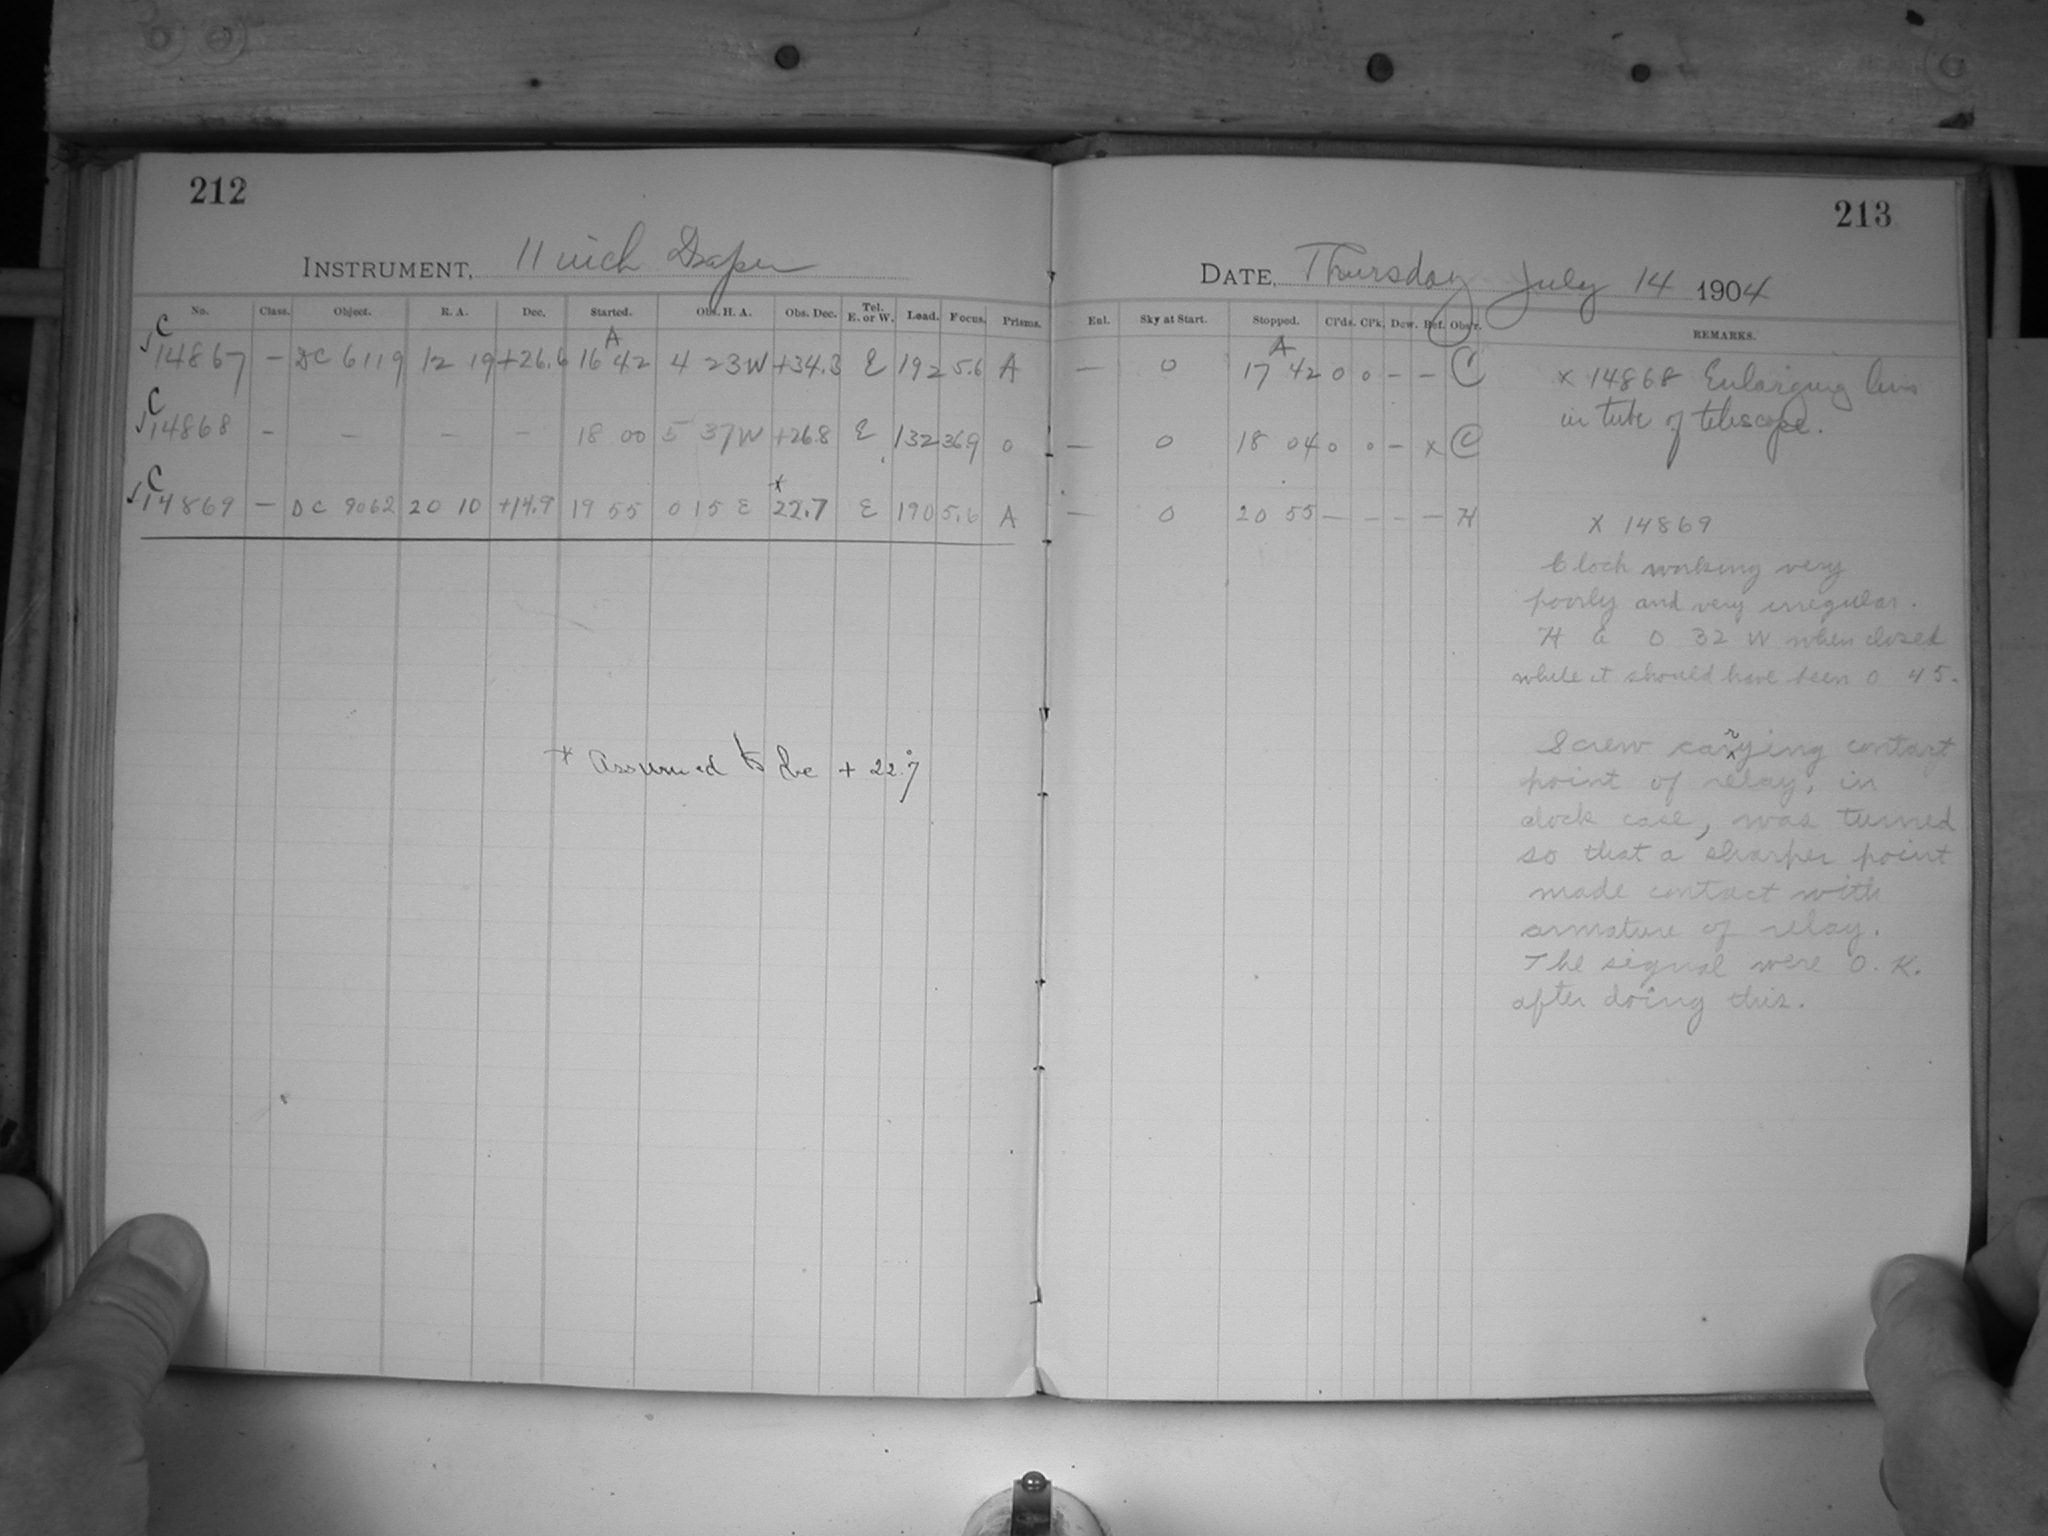 212
INSTRUMENT, 11 inch Draper
No. Class. Object. R. A. Dec. Started. Obs. H. A. Obs. Dec. Tel. E. or W. Load. Focus. Prisms.
C A
√14867 – DC 6119 12 19 +26.6 16 42 4 23W +34.3 E 192 5.6 A
C
√14868 – – – – 18 00 5 37W +26.8 E 132 36.9 0
C x
√14869 – DC 9062 20 10 +14.9 19 55 0 15 E 22.7 E 190 5.6 A
x Assumed to be + 22.°7
213
DATE, Thursday July 14 1904
Enl. Sky at Start. Stopped. Cl'ds. Cl'k. Dew. Ref. Obs'r. REMARKS.
A
– 0 17 42 0 0 – – C
– 0 18 04 0 0 – x C
– 0 20 55 – – – – H
x 14868 Enlarging lens
in tube of telescope.
X 14869
Clock working very
poorly and very irregular.
H A 0 32 W when closed
while it should have been 0 45.
Screw carrying contact
point of relay, in
clock case, was turned
so that a sharper point
made contact with
armature of relay.
The signal were O.K.
after doing this.